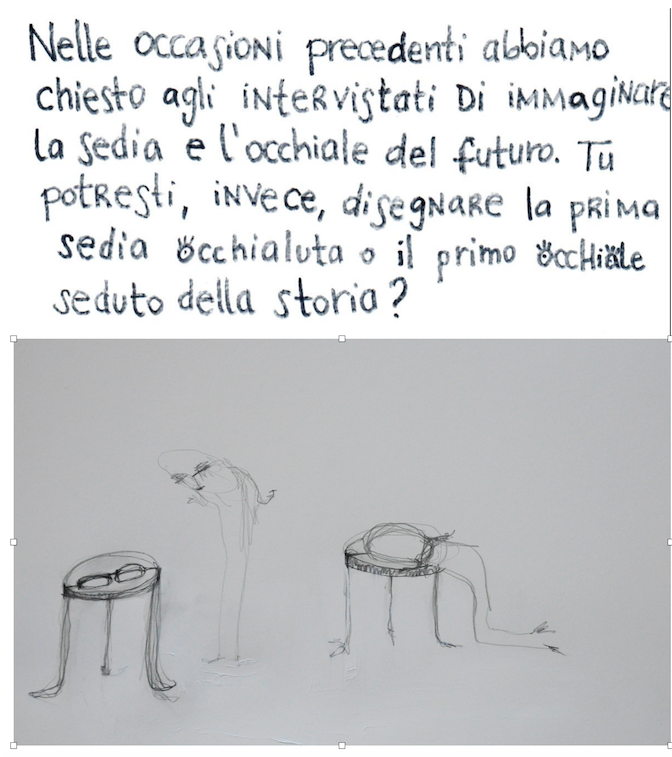 Nelle occasioni precedenti abbiamo
chiesto agli intervistati Di immaginare
la sedia e l'occhiale del futuro. Tu
potresti, invece, disegnare la prima
sedia occhialuta o il primo occHiale
seduto della storia?